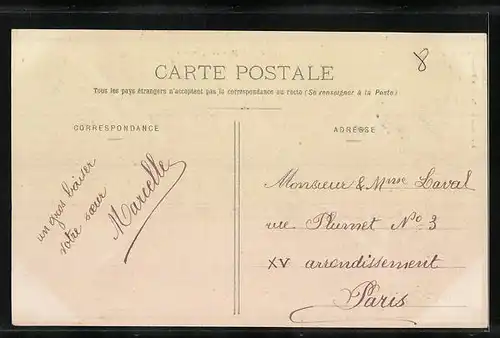 8
CARTE POSTALE
Tous les pays étrangers n'acceptent pas la correspondance au recto (Se renseigner à la Poste)
CORRESPONDANCE
un gros baiser
votre sœur
Marcelle
ADRESSE
Monsieur & Mme Laval
rue Plumet No 3
XV arrondissement
Paris